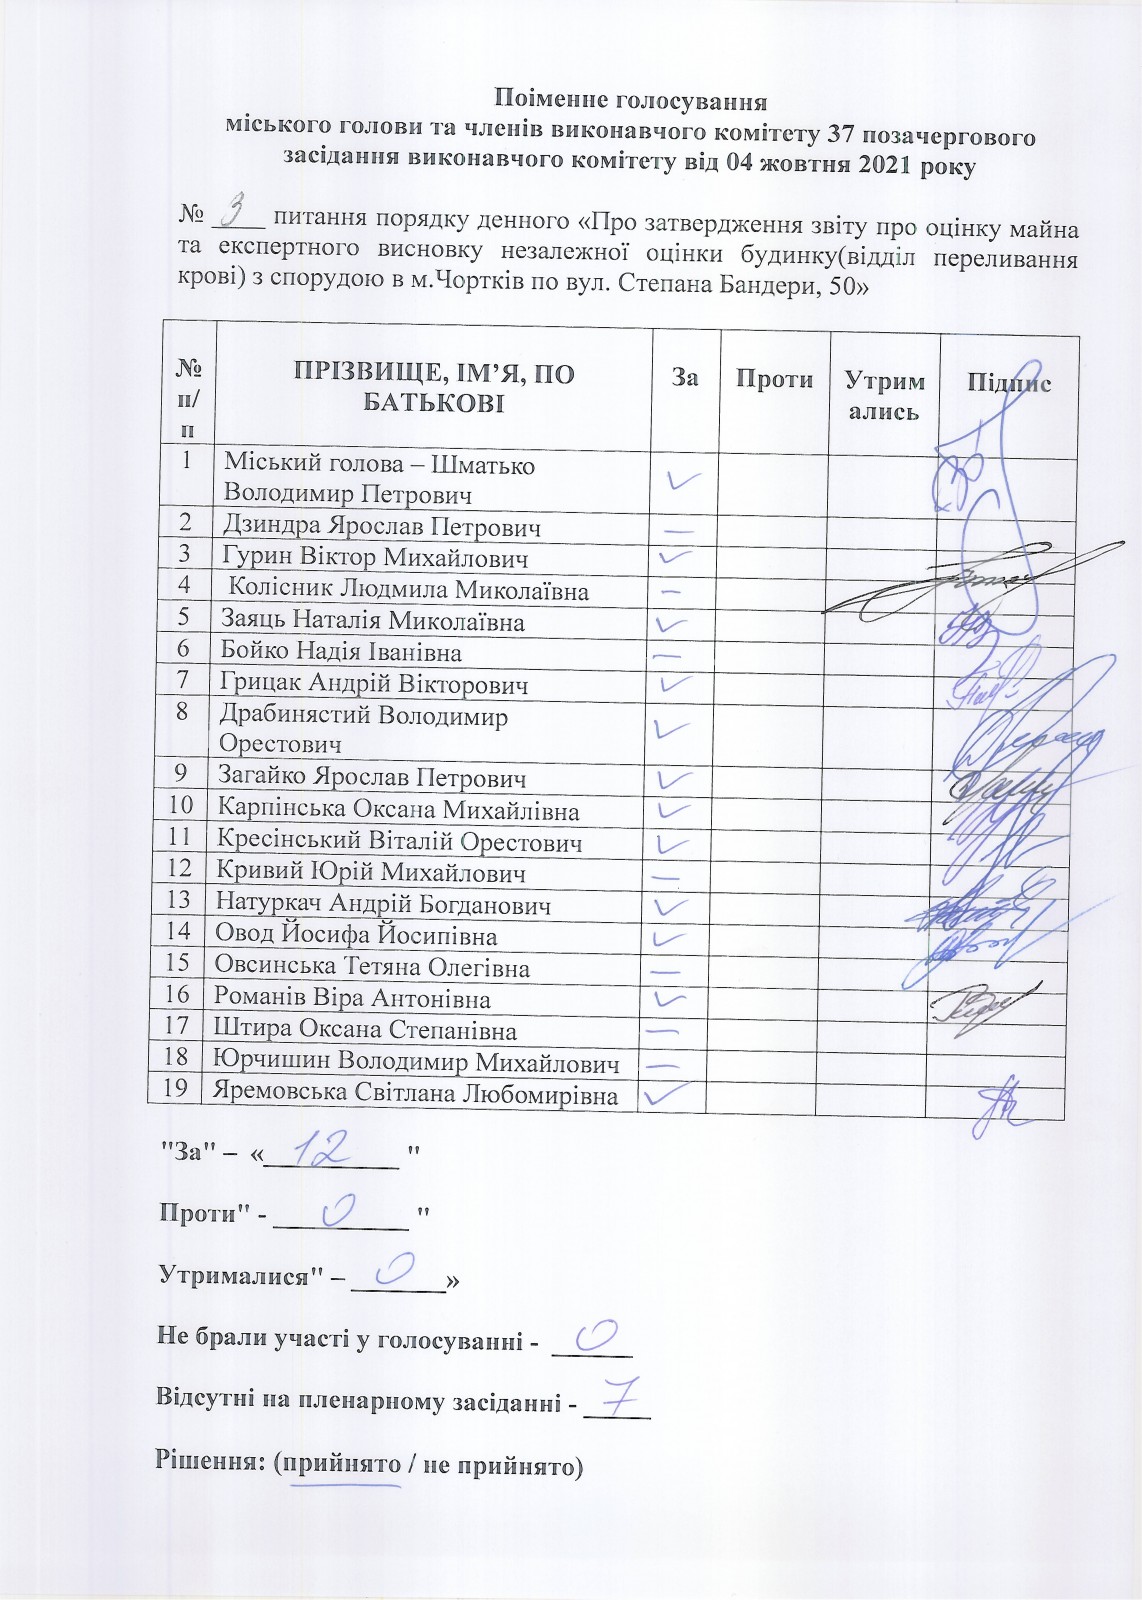 Поіменне голосування
міського голови та членів виконавчого комітету 37 позачергового
засідання виконавчого комітету від 04 жовтня 2021 року
№ 3 питання порядку денного «Про затвердження звіту про оцінку майна
та експертного висновку незалежної оцінки будинку(відділ переливання
крові) з спорудою в м.Чортків по вул. Степана Бандери, 50»
№ п/п ПРІЗВИЩЕ, ІМ’Я, ПО БАТЬКОВІ За Проти Утримались Підпис
1 Міський голова – Шматько
Володимир Петрович ✓
2 Дзиндра Ярослав Петрович —
3 Гурин Віктор Михайлович ✓
4 Колісник Людмила Миколаївна –
5 Заяць Наталія Миколаївна ✓
6 Бойко Надія Іванівна —
7 Грицак Андрій Вікторович ✓
8 Драбинястий Володимир
Орестович ✓
9 Загайко Ярослав Петрович ✓
10 Карпінська Оксана Михайлівна ✓
11 Кресінський Віталій Орестович ✓
12 Кривий Юрій Михайлович —
13 Натуркач Андрій Богданович ✓
14 Овод Йосифа Йосипівна ✓
15 Овсинська Тетяна Олегівна —
16 Романів Віра Антонівна ✓
17 Штира Оксана Степанівна —
18 Юрчишин Володимир Михайлович —
19 Яремовська Світлана Любомирівна ✓
"За" – «12 "
Проти" - 0 "
Утрималися" – 0»
Не брали участі у голосуванні - 0
Відсутні на пленарному засіданні - 7
Рішення: (прийнято / не прийнято)